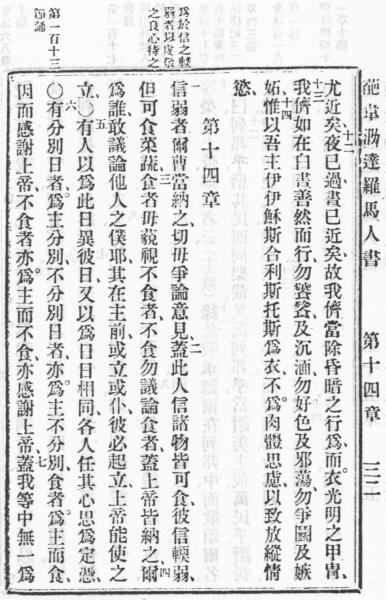 葩韋泐達羅馬人書 第十四章 三二
尤近矣十二夜已過晝已近矣故我儕當除昏暗之行爲、而衣光明之甲冑、
十三我儕如在白晝善然而行勿饕餮及沉湎勿好色及邪蕩勿爭鬬及嫉
妬十四惟以吾主伊伊穌斯合利斯托斯爲衣、不爲肉體思慮以致放縱情
慾、
第十四章
爲於信之輭
弱者以虔敬
之良心待之
一信弱者爾曹當納之、切毋爭論意見、二蓋此人信諸物皆可食、彼信輭弱、
但可食菜蔬、三食者毋藐視不食者、不食者勿議論食者、蓋上帝皆納之、四爾
爲誰敢議論他人之僕耶、其在主前或立或仆、彼必起立、上帝能使之
立、○五有人以爲此日異彼日、又以爲日日相同、各人任其心思爲定憑、
第一百十三
節誦
○六有分別日者、爲主分別、不分別日者、亦爲主不分別、食者、爲主而食、
因而感謝上帝、不食者、亦爲主而不食、亦感謝上帝、七蓋我等中無一爲